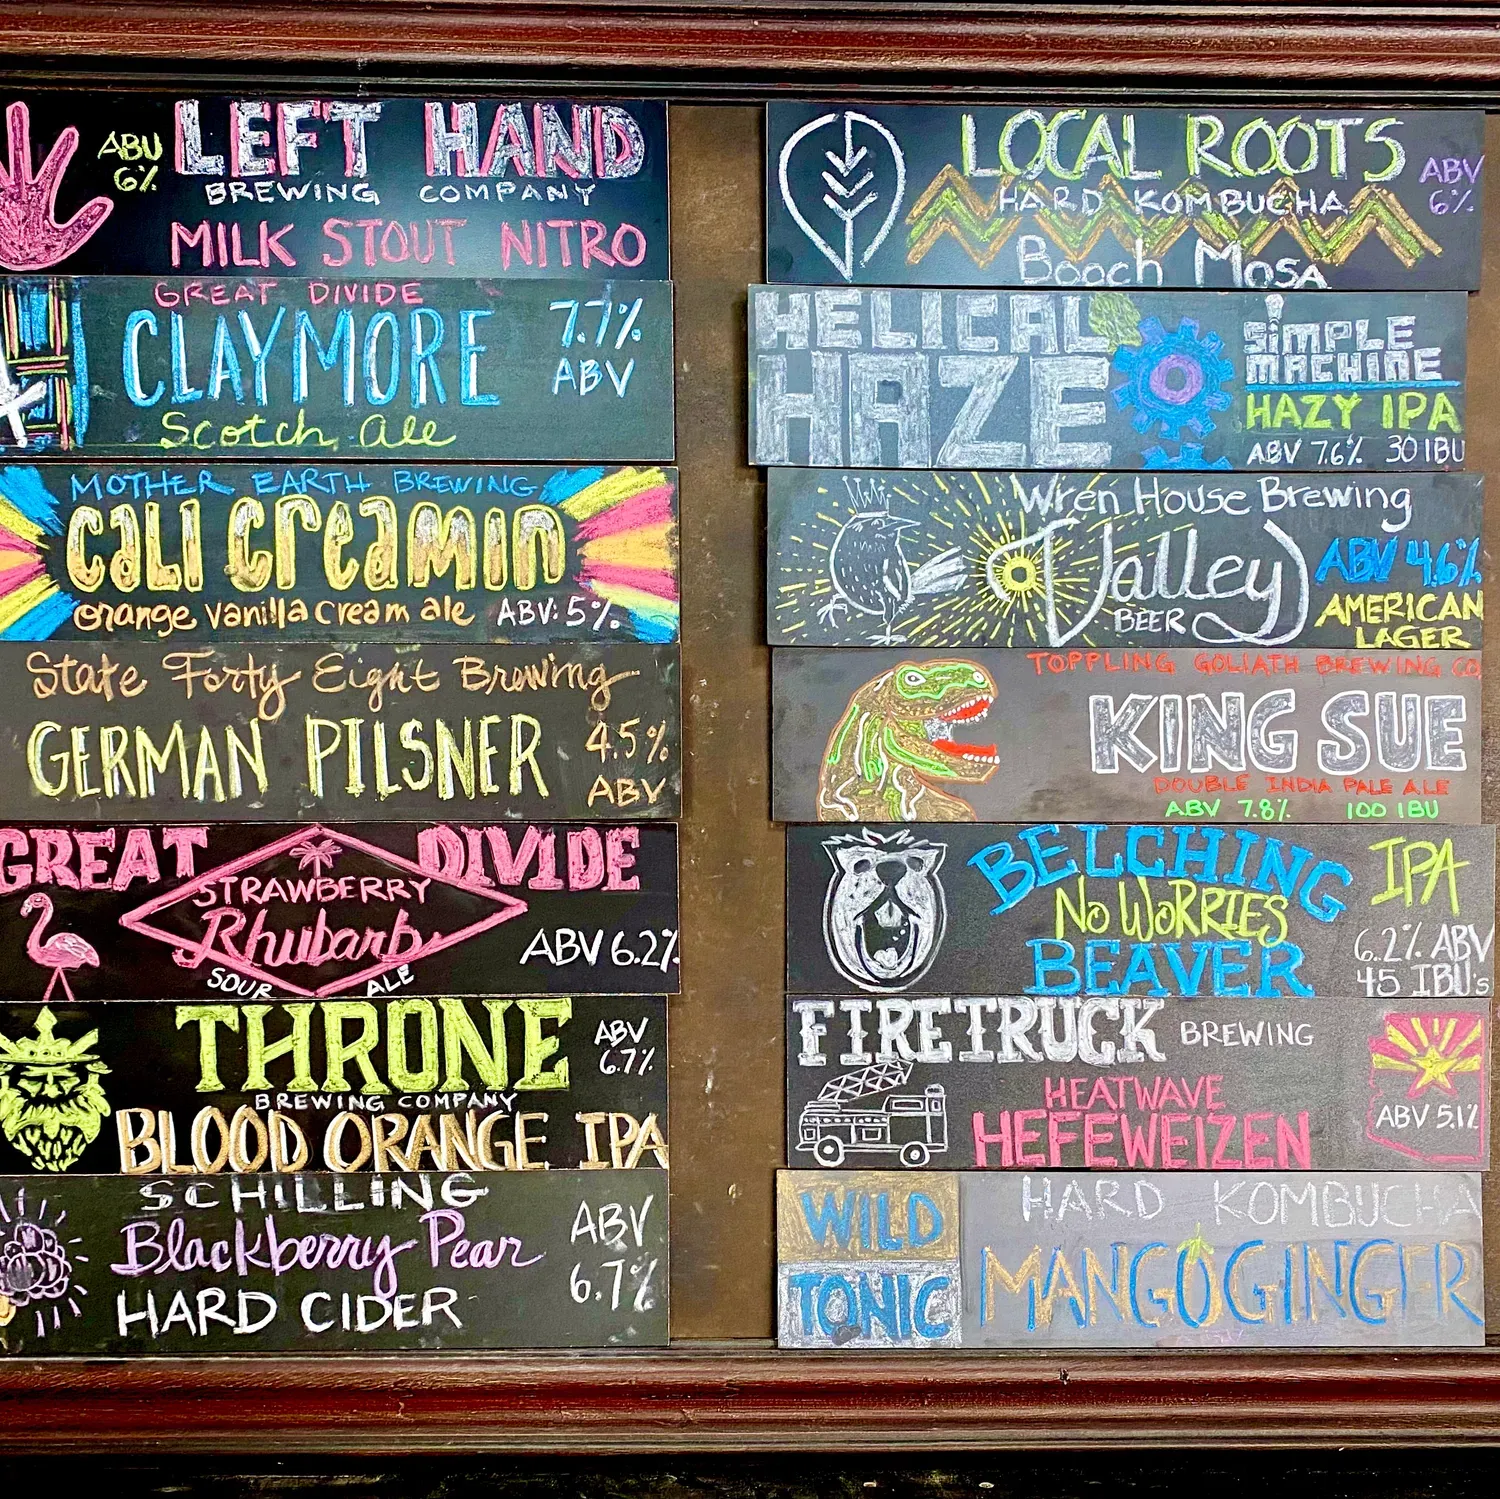 ABU
6%
LEFT HAND
BREWING COMPANY
MILK STOUT NITRO
GREAT DIVIDE
CLAYMORE
Scotch Ale
7.7%
ABV
MOTHER EARTH BREWING
CALI CREAMIN
orange vanilla cream ale ABV: 5%
State Forty Eight Brewing
GERMAN PILSNER
4.5%
ABV
GREAT DIVIDE
STRAWBERRY
Rhubarb
SOUR ALE
ABV 6.2%
THRONE
BREWING COMPANY
BLOOD ORANGE IPA
ABV
6.7%
SCHILLING
Blackberry Pear
HARD CIDER
ABV
6.7%
LOCAL ROOTS
HARD KOMBUCHA
Booch Mosa
ABV
6%
HELICAL
HAZE
SIMPLE
MACHINE
HAZY IPA
ABV 7.6% 30 IBU
Wren House Brewing
Valley
BEER
ABV 4.6%
AMERICAN
LAGER
TOPPLING GOLIATH BREWING CO.
KING SUE
DOUBLE INDIA PALE ALE
ABV 7.8% 100 IBU
BELCHING
NO WORRIES
BEAVER
IPA
6.2% ABV
45 IBU's
FIRETRUCK BREWING
HEATWAVE
HEFEWEIZEN
ABV 5.1%
WILD
TONIC
HARD KOMBUCHA
MANGO GINGER